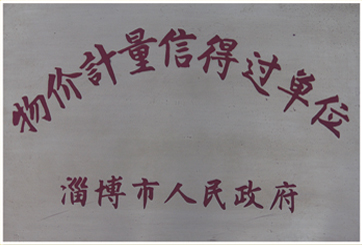 物价計量信得过单位
淄博市人民政府